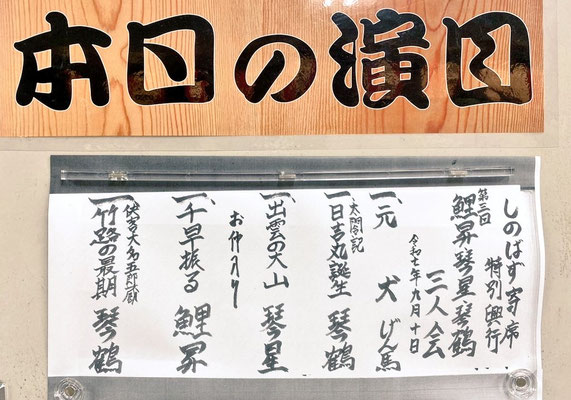 本日の演目
しのばず寄席
特別興行
第三回
鯉昇琴星琴鶴
三人会
令和七年六月十日
一、元犬 げん馬
太閤記
一、日吉丸誕生 琴鶴
一、出雲の大山 琴星
お仲入り
一、千早振る 鯉昇
一、竹路の最期 琴鶴